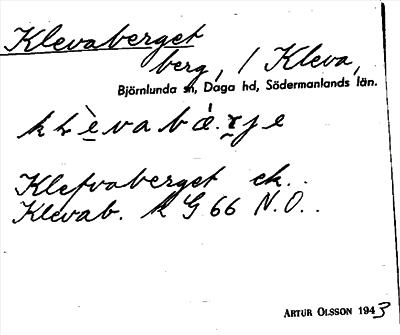 Klevaberget
berg, / Kleva,
Björnlunda sn, Daga hd, Södermanlands län.
Klefvaberget ek..
Klevab. k G 66 N.O..
ARTUR OLSSON 1943